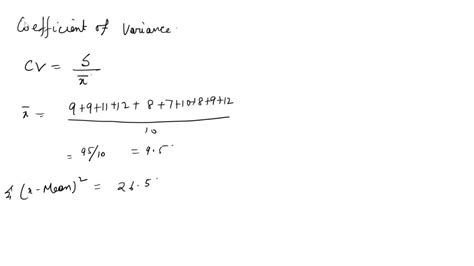 Coefficient of Variance.
CV = S / x̄
x̄ = 9+9+11+12+ 8+7+10+8+9+12 / 10
= 95/10 = 9.5
Σ (x-Mean)² = 26.5